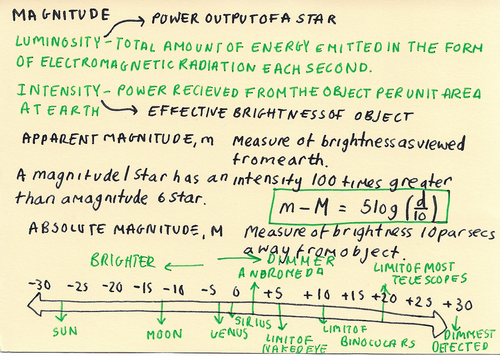 MAGNITUDE
POWER OUTPUT OF A STAR
LUMINOSITY - TOTAL AMOUNT OF ENERGY EMITTED IN THE FORM
OF ELECTROMAGNETIC RADIATION EACH SECOND.
INTENSITY - POWER RECIEVED FROM THE OBJECT PER UNIT AREA
AT EARTH
EFFECTIVE BRIGHTNESS OF OBJECT
APPARENT MAGNITUDE, m Measure of brightness as viewed
from earth.
A magnitude 1 star has an intensity 100 times greater
than a magnitude 6 star.
m - M = 5 log (d/10)
ABSOLUTE MAGNITUDE, M Measure of brightness 10 parsecs
away from object.
BRIGHTER ← → DIMMER
ANDROMEDA
LIMIT OF MOST
TELESCOPES
-30 -25 -20 -15 -10 -5 0 +5 +10 +15 +20 +25 +30
SUN
MOON
VENUS
SIRIUS
LIMIT OF
NAKED EYE
LIMIT OF
BINOCULARS
DIMMEST
DETECTED